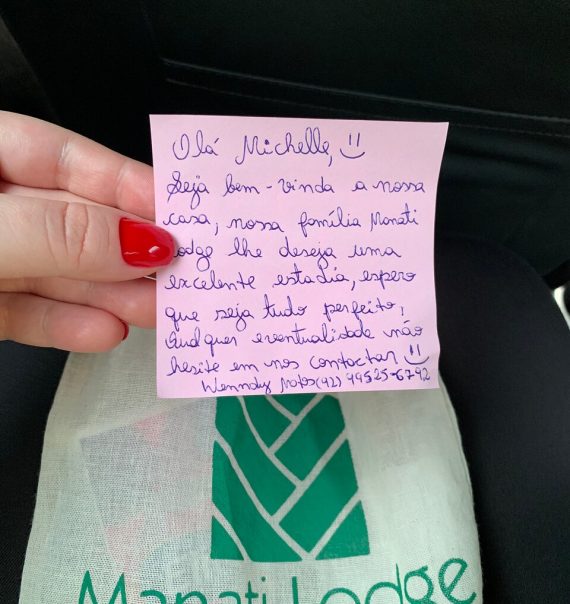 Olá Michelle, :)
Seja bem-vinda a nossa
casa, nossa família Manati
Lodge lhe deseja uma
excelente estadia, espero
que seja tudo perfeito,
Qualquer eventualidade não
hesite em nos contactar :)
Wenndy Matos (92) 99525-6792
Manati Lodge